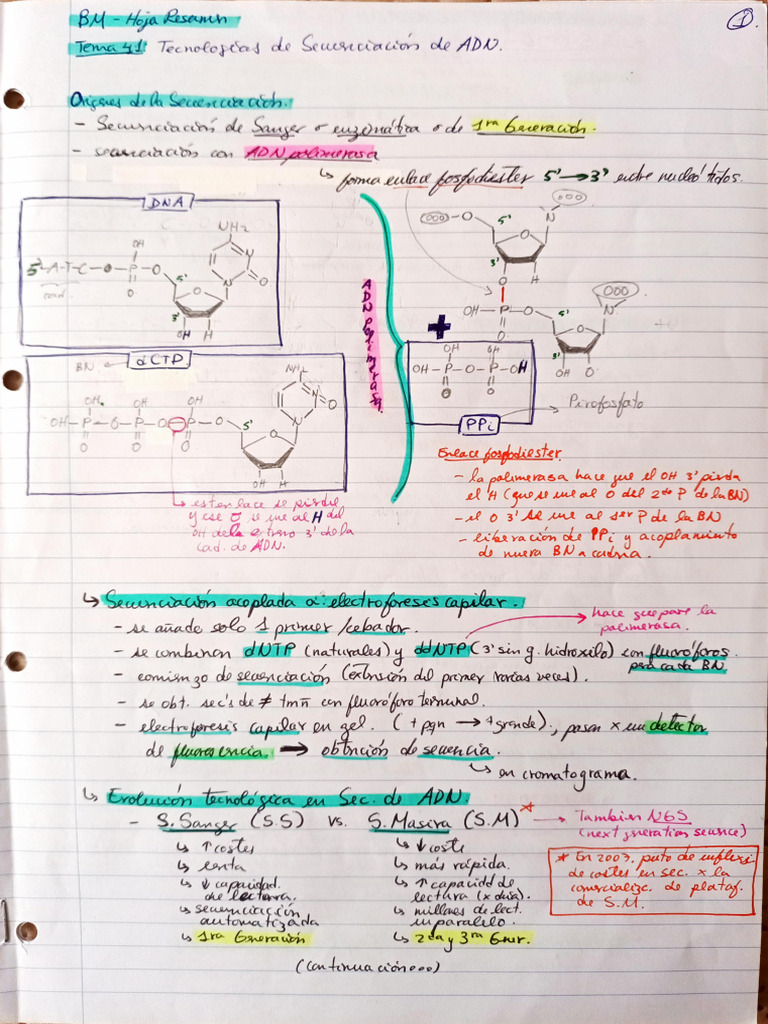 BM - Hoja Resumen
1.
Tema 4.1: Tecnologías de Secuenciación de ADN.
Orígenes de la Secuenciación.
- Secuenciación de Sanger o enzimática o de 1ra Generación.
- secuenciación con ADN polimerasa
↳ forma enlace fosfodiester 5' → 3' entre nucleótidos.
DNA
5' -A-T-C-O-P-O
OH
O
5'
3'
OH H
NH2
N
N
O
ADN polimerasa
BN ← dCTP
OH-P-O-P-O-P-O
OH OH OH
O O O
5'
OH H
NH2
N
N
O
↳ este enlace se pierde
y ese O se une al H del
OH de la extremo 3' de la
cad. de ADN.
-O
5'
N
O
O H
OH-P-O
O
5'
N
3'
OH O
+
OH OH
OH-P-O-P-OH
O O
PPi → Pirofosfato
Enlace fosfodiester
- la polimerasa hace que el OH 3' pierda
el H (que se une al O del 2do P de la BN)
- el O 3' se une al 1er P de la BN
- liberación de PPi y acoplamiento
de nueva BN a cadena.
↳ Secuenciación acoplada a: electroforesis capilar.
- se añade solo 1 primer/cebador.
- se combinan dNTP (naturales) y ddNTP (3' sin g. hidroxilo) con fluoróforos
para cada BN.
→ hace que pare la
polimerasa.
- comienzo de secuenciación (extensión del primer varias veces).
- se obt. sec's de ≠ tmñ con fluoróforo terminal.
- electroforesis capilar en gel. (+ pqñ → + grande), pasan x un detector
de fluorescencia. → obtención de secuencia.
↳ en cromatograma.
↳ Evolución tecnológica en Sec. de ADN.
- S. Sanger (S.S) vs. S. Masiva (S.M)* → También NGS
(next generation seuence)
↳ ↑ costes
↳ lenta
↳ ↓ capacidad.
de lectura.
↳ secuenciación
automatizada
↳ 1ra Generación
↳ ↓ coste
↳ más rápida.
↳ ↑ capacidd de
lectura (x día).
↳ millones de lect.
en paralelo.
↳ 2da y 3ra Gener.
* En 2003, punto de inflexi.
de costes en sec. x la
comercializ. de plataf.
de S.M.
(continuación...)